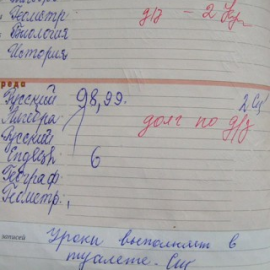 Геометр.
Биология
История
д/з - 2
среда
Русский 98, 99.
Алгебра
долг по д/з
Русский
English 6
Географ.
Геометр.
Уроки выполняет в
туалете.